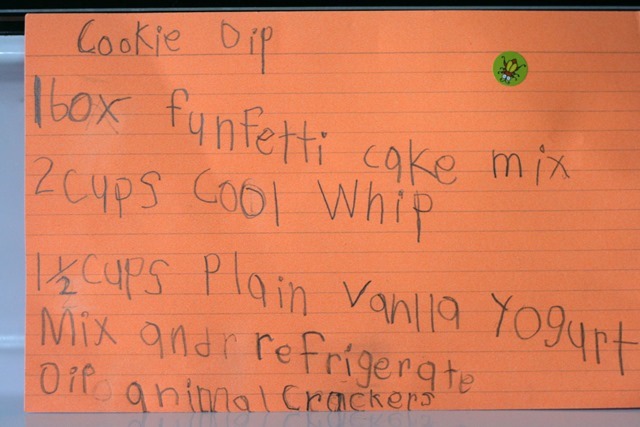 Cookie Dip
1 box funfetti cake mix
2 cups Cool Whip
1 1/2 cups Plain Vanlla Yogurt
Mix and r refrigerate
Dip animal Crackers